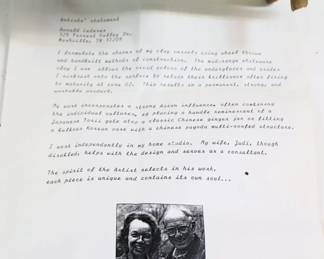 Artists' statement
Ronald
Nashville, TN 37209
I formulate the shapes of my clay vessels using wheel thrown
and handbuilt methods of construction. The mid-range stoneware
clay I use allows the vivid colors of the underglazes and oxides
I contrast onto the surface to retain their brilliance after firing
to maturity at cone 02. This results in a permanent, strong, and
washable product.
My work incorporates a strong Asian influence, often combining
the individual cultures, as placing a handle reminiscent of a
Japanese Torii gate atop a classic Chinese ginger jar or fitting
a bulbous Korean vase with a chinese pagoda multi-roofed structure.
I work independently in my home studio. My wife, Judi, though
disabled, helps with the design and serves as a consultant.
The spirit of the Artist selects in his work,
each piece is unique and contains its own soul...